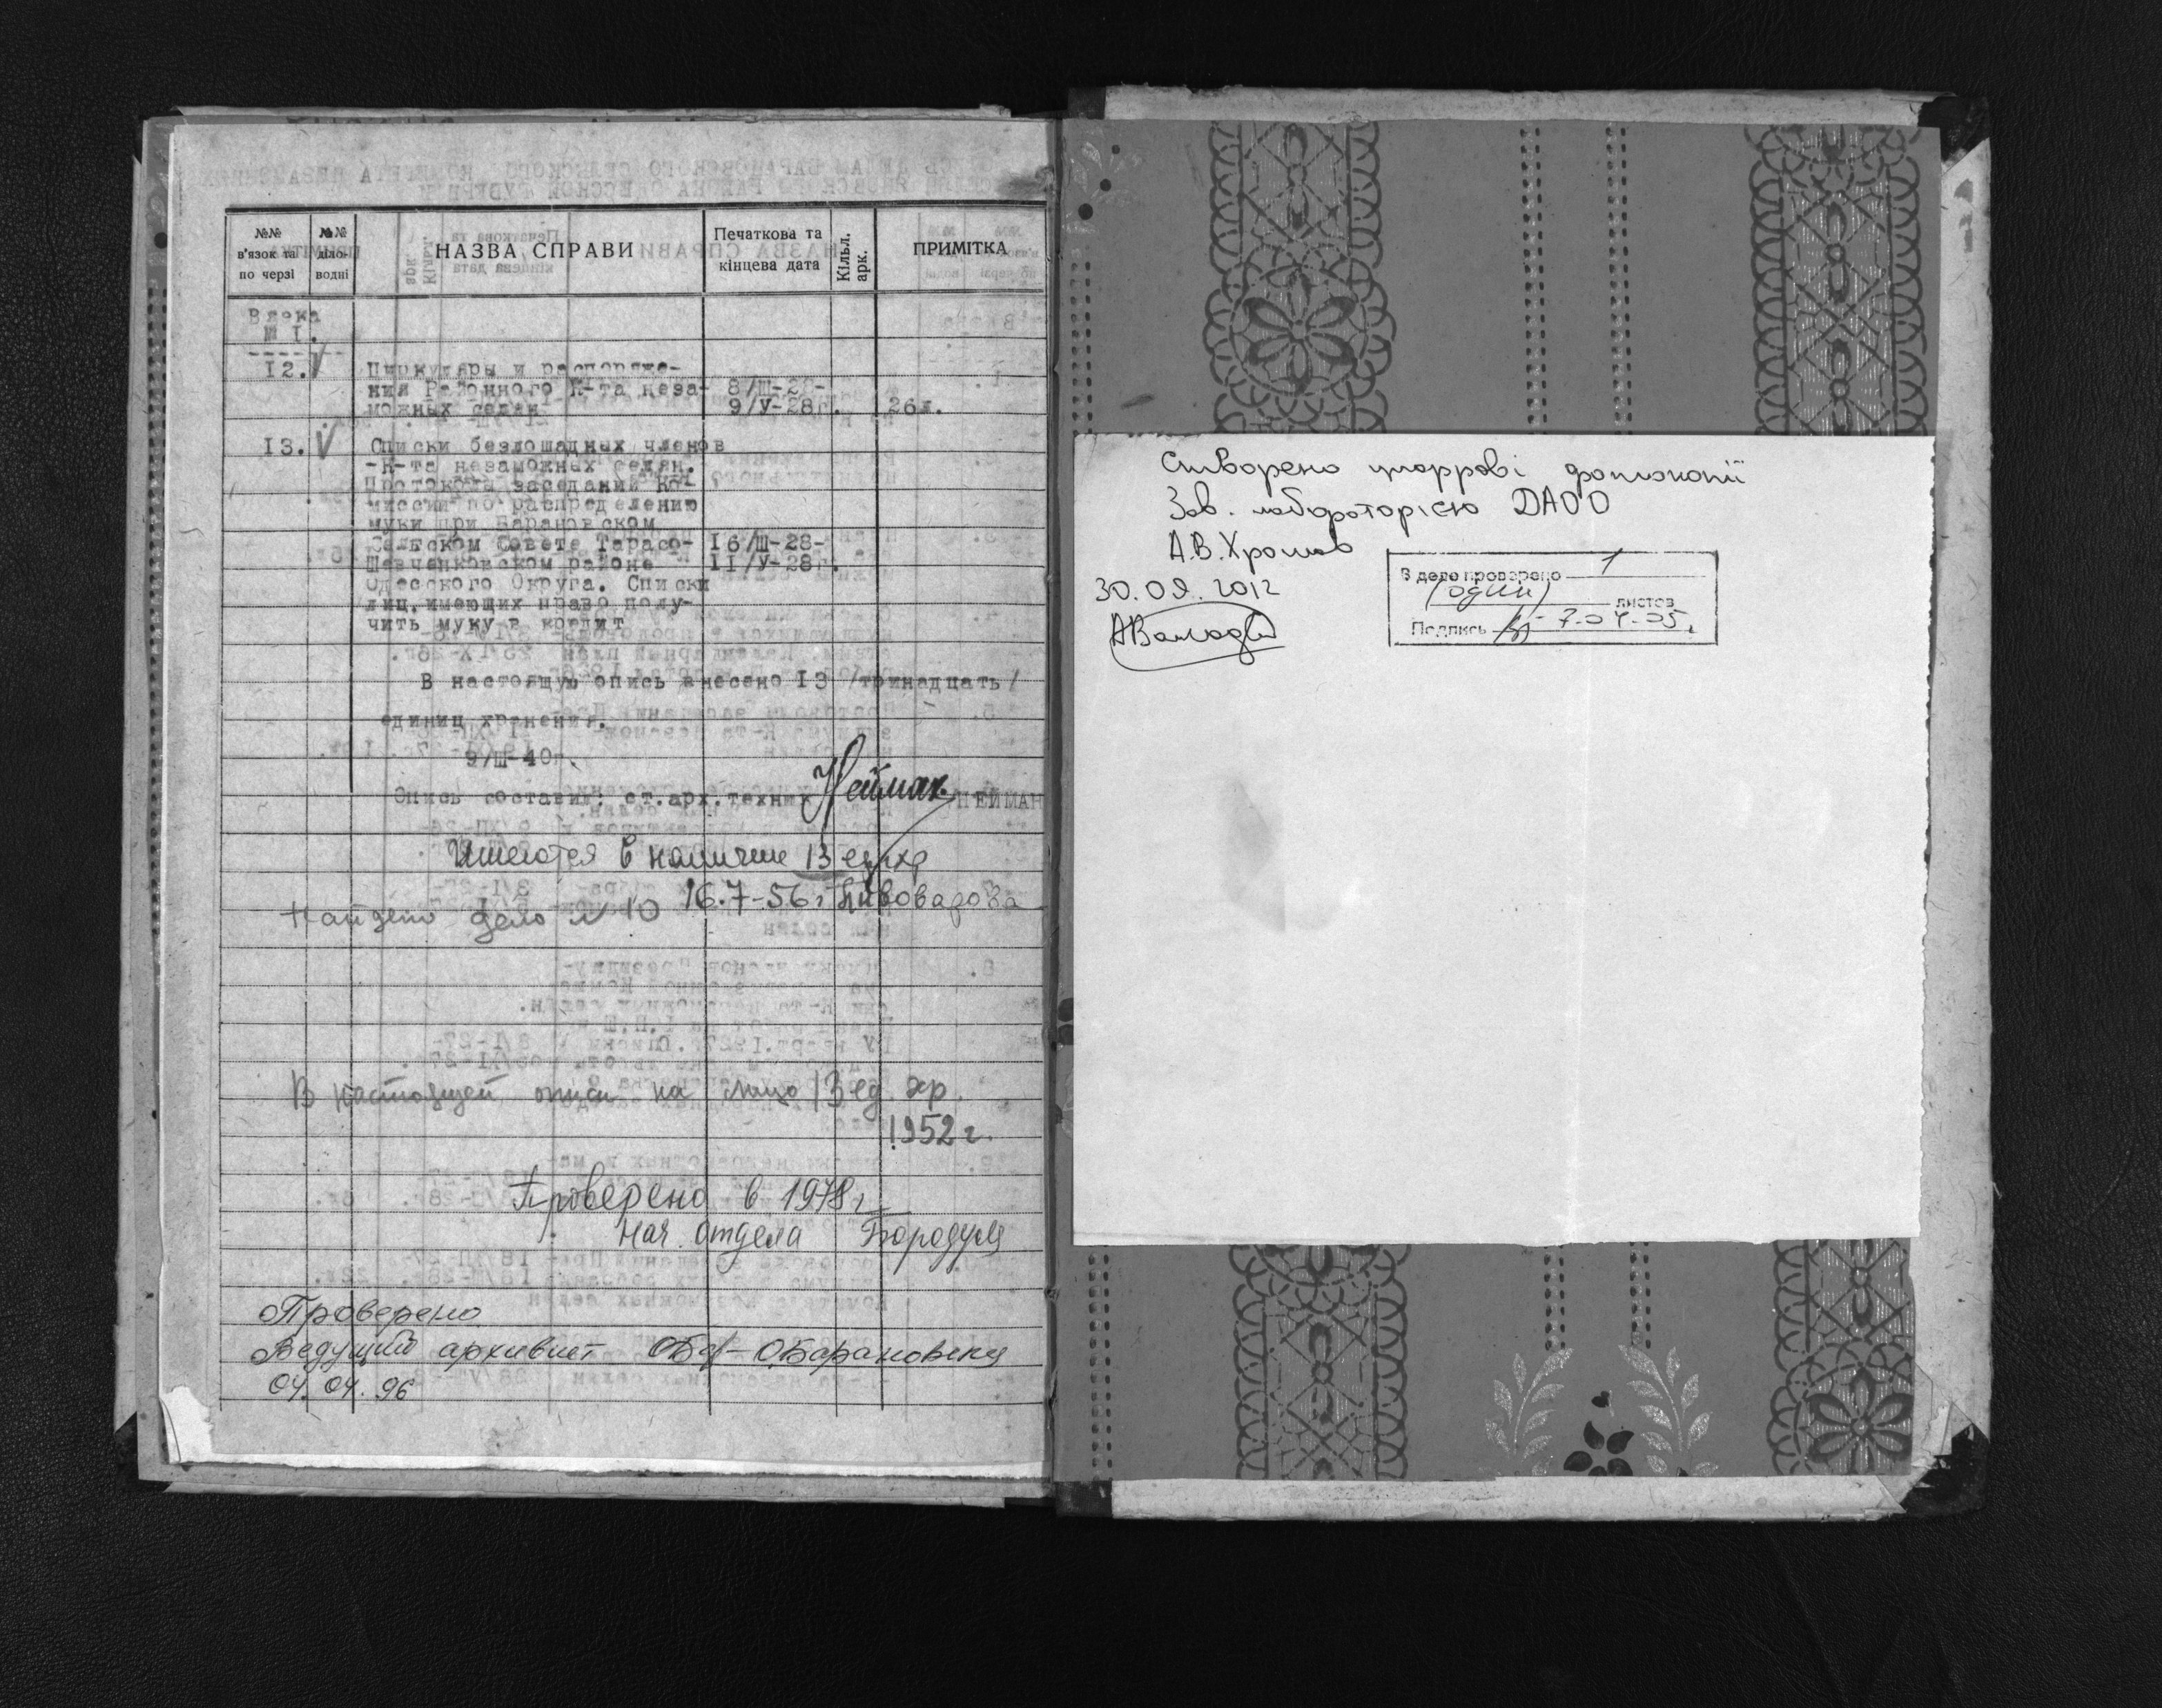 №№ в'язок та по черзі
№№ діло-водні
НАЗВА СПРАВИ
Печаткова та кінцева дата
Кільк. арк.
ПРИМІТКА
Вязка
№ I.
12. V Циркуляры и распоряже-
ния Районного К-та неза- 8/Ш-28-
можных селян 9/У-28г. 26л.
13. V Списки безлошадных членов
-К-та незаможных селян.
Протоколы заседаний Ко-
миссии по распределению
муки при Барановском
Сельском Совете Тарасо- 16/Ш-28-
Шевченковском районе 11/У-28г.
Одесского Округа. Списки
лиц, имеющих право полу-
чить муку в кредит
В настоящую опись внесено 13 /тринадцать/
единиц хранения.
9/Ш-40г.
Опись составил: ст.арх.техник Нейман НЕЙМАН
Имеются в наличие 13 ед хр
16.7-56г Пивоварова
Найдено дело № 10
В настоящей описи на лицо 13 ед. хр.
1952 г.
Проверено в 1978 г
Нач. отдела Бородуля
Проверено
Ведущий архивист О.Барановская
04.04.96
Створено цифрові фотокопії
Зав. лабораторією ДАОО
А.В.Хромов
30.09.2012
В деле проверено 1
(один) листов
Подпись